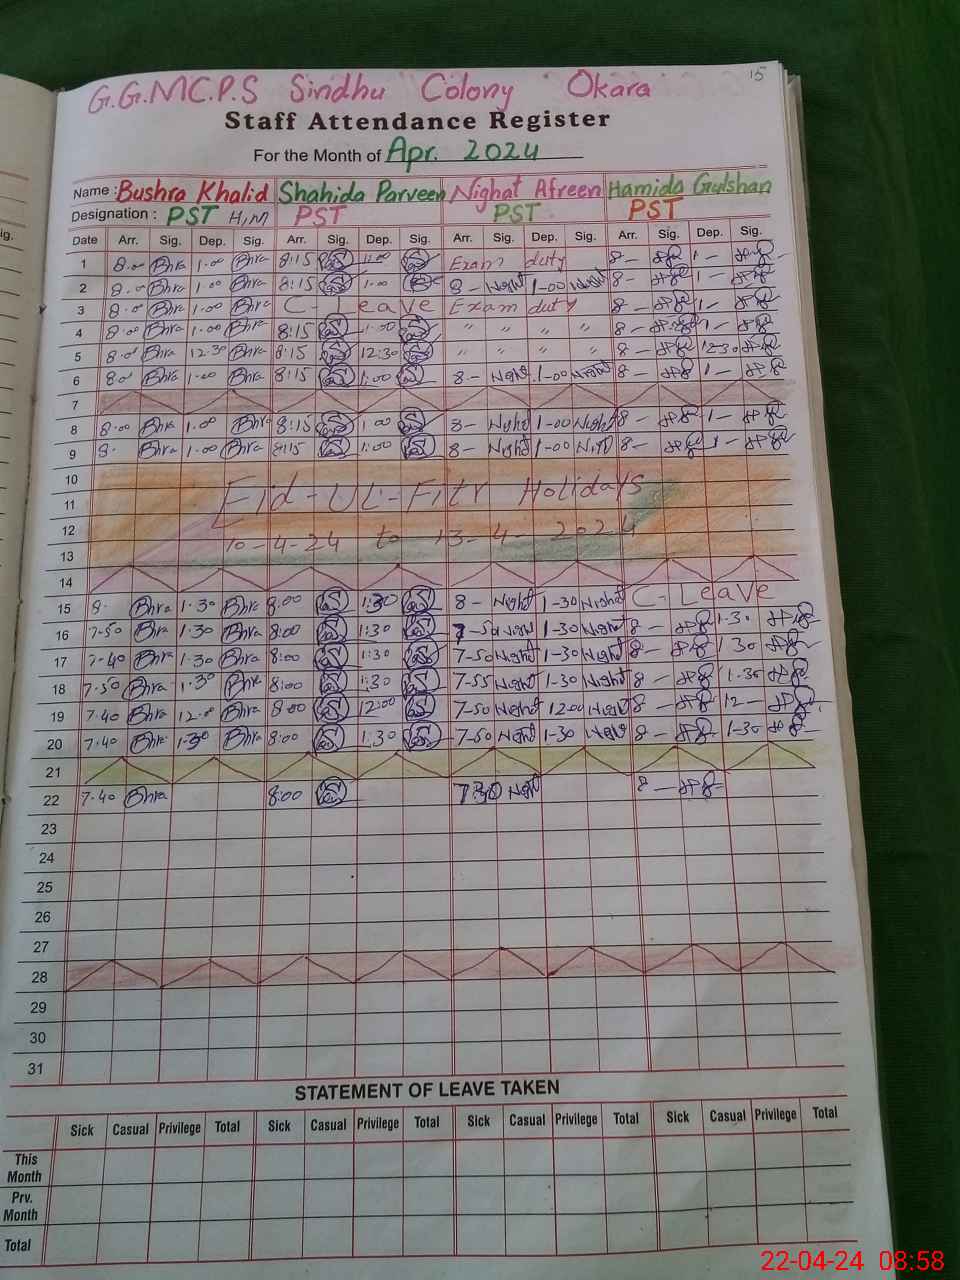 15
G.G.M.C.P.S Sindhu Colony Okara
Staff Attendance Register
For the Month of Apr. 2024
Name : Bushra Khalid Shahida Parveen Nighat Afreen Hamida Gulshan
Designation : PST H/M PST PST PST
Date Arr. Sig. Dep. Sig. Arr. Sig. Dep. Sig. Arr. Sig. Dep. Sig. Arr. Sig. Dep. Sig.
1 8.00 Bhra 1.00 Bhra 8:15 Exam duty 8- 1-
2 8.00 Bhra 1.00 Bhra 8:15 1:00 8- Night 1-00 Night 8- 1-
3 8.00 Bhra 1.00 Bhra C-Leave Exam duty 8- 1-
4 8.00 Bhra 1.00 Bhra 8:15 1:00 " " " " 8- 1-
5 8.00 Bhra 12.30 Bhra 8:15 12:30 " " " " 8- 12-30
6 8.00 Bhra 1.00 Bhra 8:15 1:00 8- Night 1-00 Night 8- 1-
7
8 8.00 Bhra 1.00 Bhra 8:15 1:00 8- Night 1-00 Night 8- 1-
9 8. Bhra 1.00 Bhra 8:15 1:00 8- Night 1-00 Night 8- 1-
10
11 Eid-UL-Fitr Holidays
12
10-4-24 to 13-4-2024
13
14
15 8. Bhra 1.30 Bhra 8:00 1:30 8- Night 1-30 Night C-Leave
16 7-50 Bhra 1.30 Bhra 8:00 1:30 7-50 Night 1-30 Night 8- 1.30
17 7.40 Bhra 1.30 Bhra 8:00 1:30 7-50 Night 1-30 Night 8- 1 30
18 7.50 Bhra 1.30 Bhra 8:00 1:30 7-55 Night 1-30 Night 8- 1.30
19 7.40 Bhra 12.00 Bhra 8:00 12:00 7-50 Night 12 00 Night 8- 12-
20 7.40 Bhra 1.30 Bhra 8:00 1:30 7-50 Night 1-30 Night 8- 1-30
21
22 7.40 Bhra 8:00 7 30 Night 8-
23
24
25
26
27
28
29
30
31
STATEMENT OF LEAVE TAKEN
Sick Casual Privilege Total Sick Casual Privilege Total Sick Casual Privilege Total Sick Casual Privilege Total
This
Month
Prv.
Month
Total
22-04-24 08:58